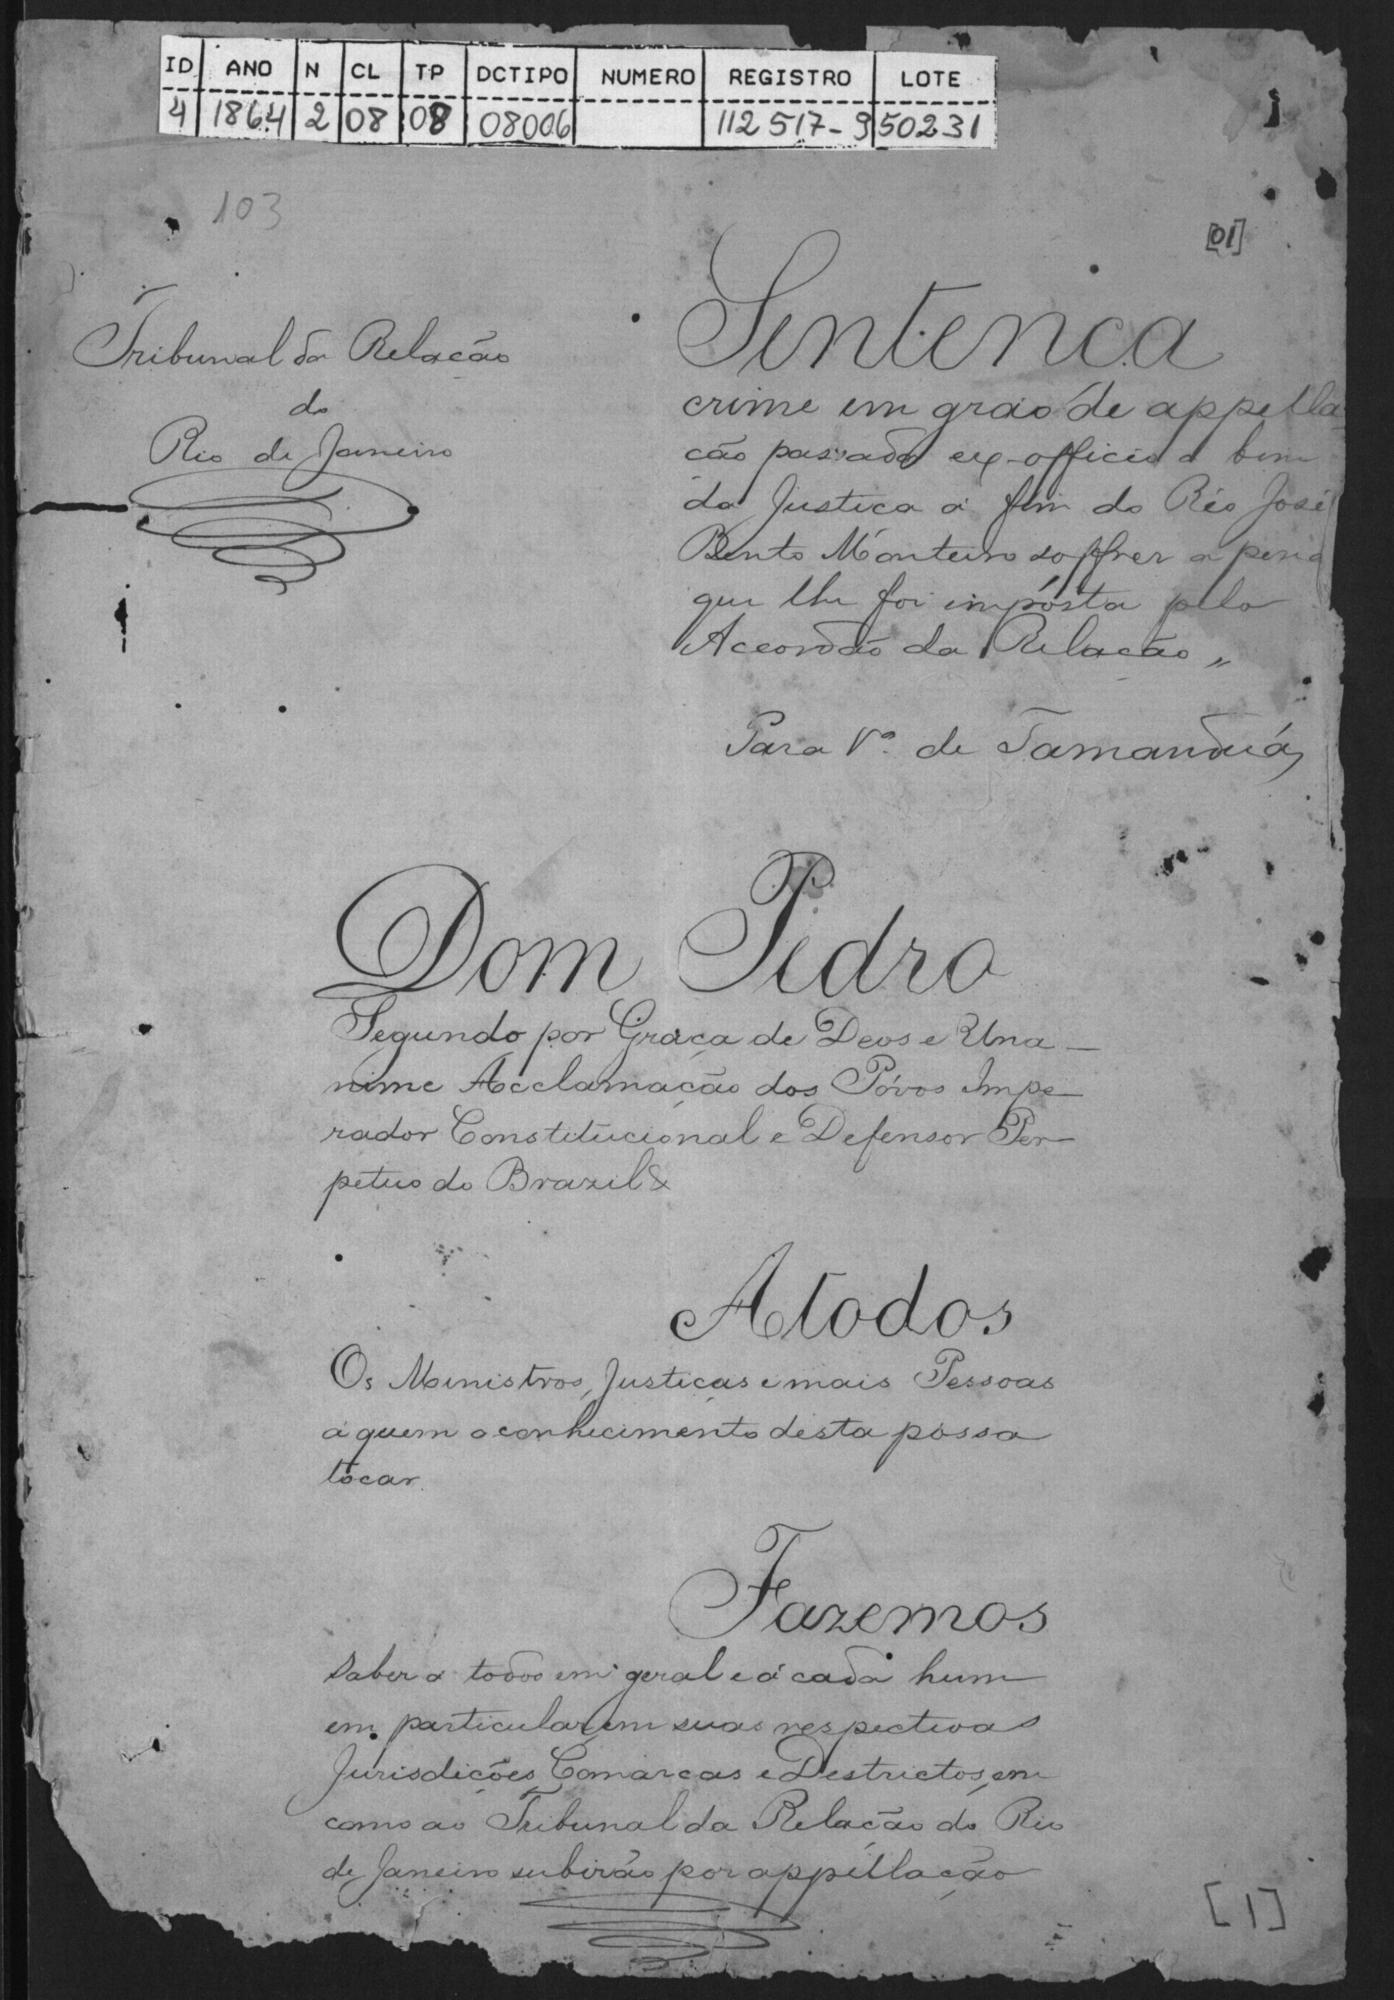 ID ANO N CL TP DCTIPO NUMERO REGISTRO LOTE
4 1864 2 08 08 08006 112517-9 50231
103
[01]
Tribunal da Relação
do
Rio de Janeiro
Sentença
crime em gráo de appella
ção passada ex-officio a bem
da Justiça a fim do Réo José
Bento Monteiro soffrer a pena
que lhe foi impósta pelo
Accordão da Relação„
Para Vª. de Tamanduá,
Dom Pedro
Segundo por Graça de Deos e Una-
nime Acclamação dos Póvos Impe-
rador Constitucional e Defensor Per-
petuo do Brazil &
Atodos
Os Ministros, Justiças e mais Pessoas
a quem o conhecimento desta possa
tocar.
Fazemos
saber a todos em geral e á cada hum
em particular em suas respectivas
Jurisdições Comarcas e Destrictos, em
como ao Tribunal da Relação do Rio
de Janeiro subirão por appellação
[1]